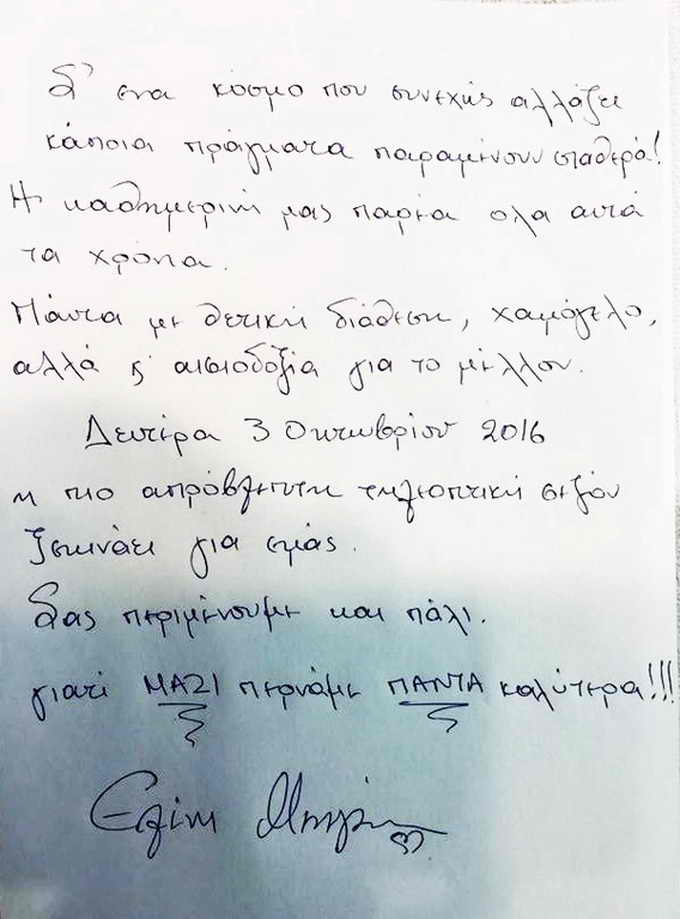 Σ' ενα κόσμο που συνεχής αλλάζει
κάποια πράγματα παραμένουν σταθερά!
Η καθημερινή μας παρέα ολα αυτά
τα χρόνια.
Πάντα με θετική διάθεση, χαμόγελο,
αλλά κ' αισιοδοξία για το μέλλον.
Δευτέρα 3 Οκτωβρίου 2016
η πιο απρόβλεπτη τηλεοπτική σεζόν
ξεκινάει για εμάς.
Σας περιμένουμε και πάλι.
γιατί ΜΑΖΙ περνάμε ΠΑΝΤΑ καλύτερα!!!
Ελένη